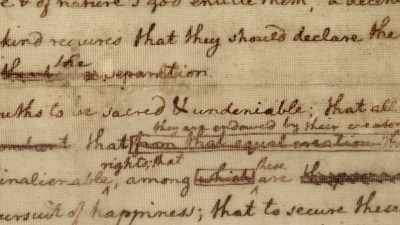 & of nature's god entitle them, a decen
kind requires that they should declare the
the
separation
uths to be sacred & undeniable; that all
they are endowed by their creator
that from that equal creation th
rights; that
these
inalienable, among which are
ursuit of happiness; that to secure these